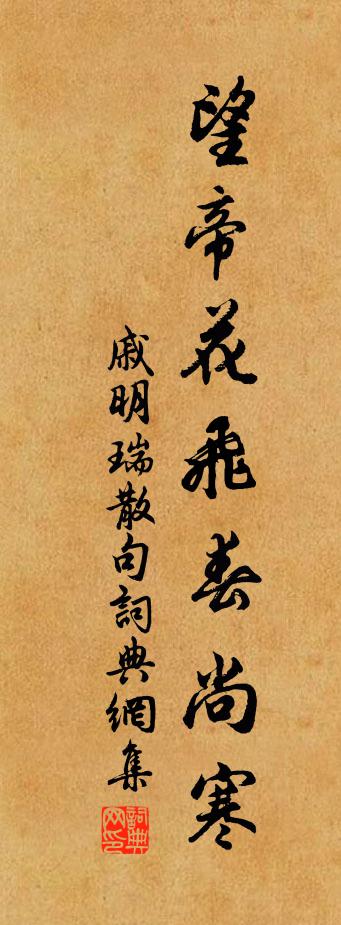 望帝花飛春尚寒
戚明瑞散句詞典網集
詞典网印